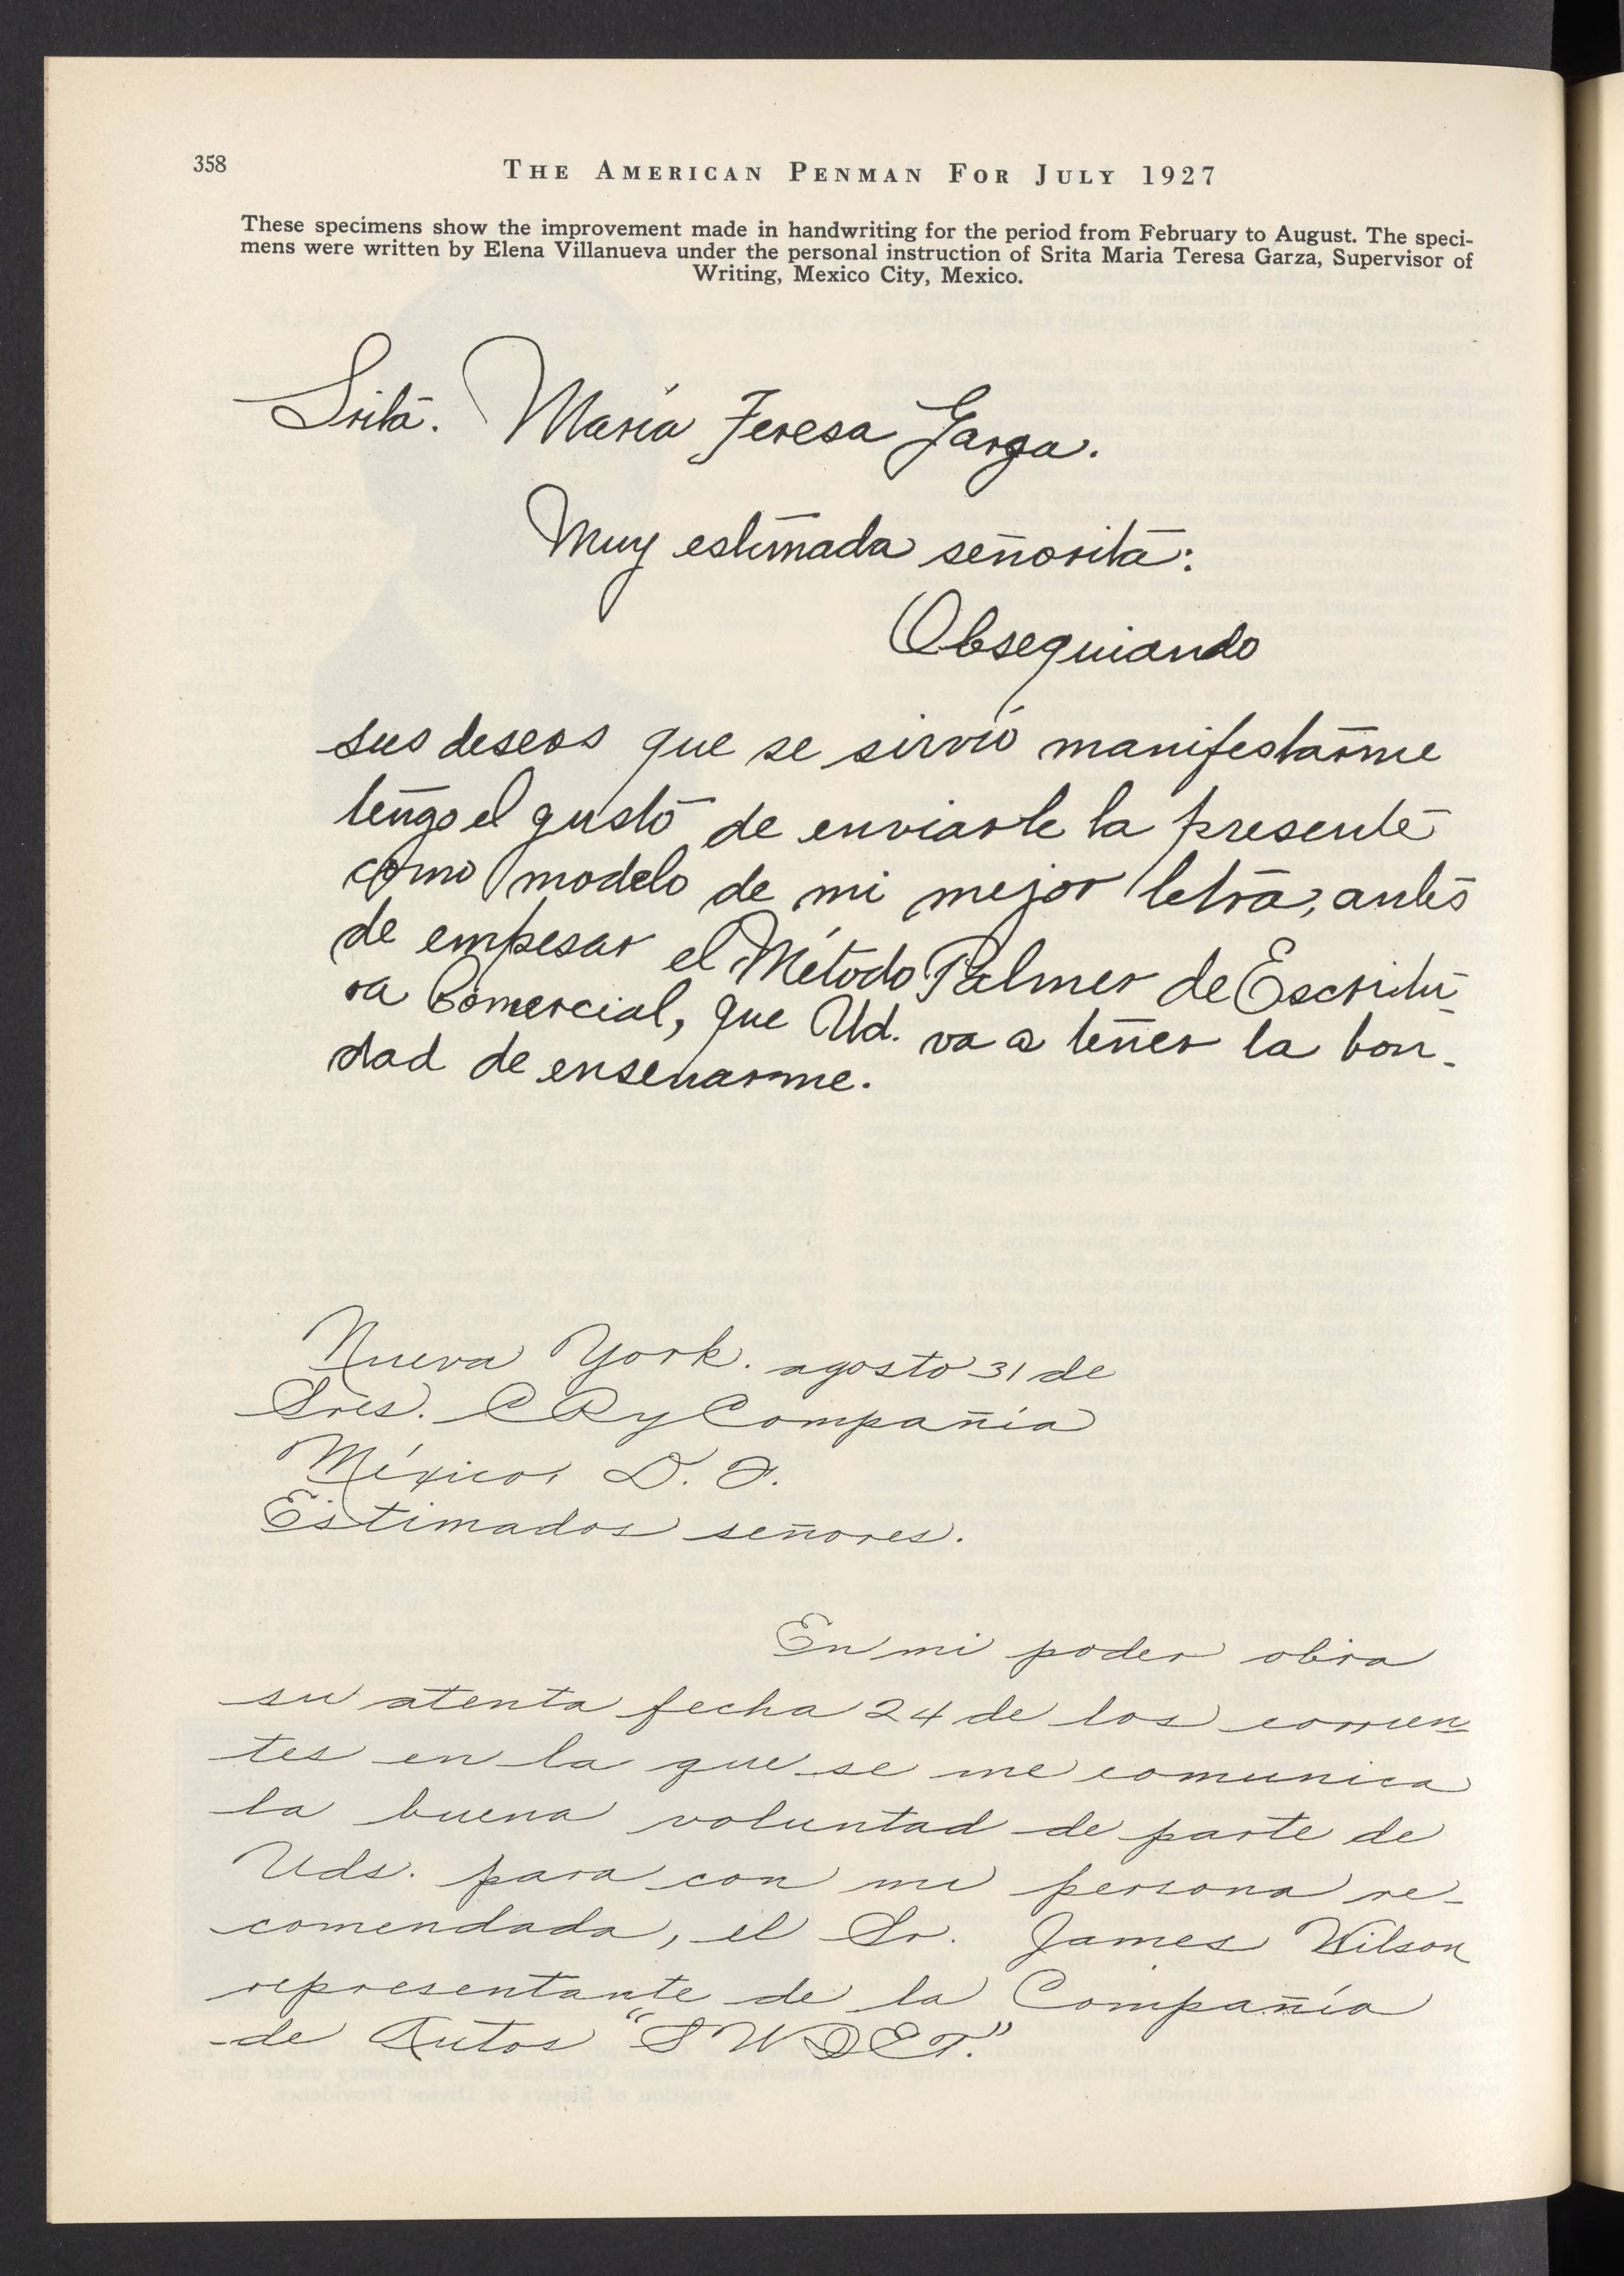 358
THE AMERICAN PENMAN FOR JULY 1927
These specimens show the improvement made in handwriting for the period from February to August. The speci-
mens were written by Elena Villanueva under the personal instruction of Srita Maria Teresa Garza, Supervisor of
Writing, Mexico City, Mexico.
Srita. María Teresa Garza.
Muy estimada señorita:
Obsequiando
sus deseos que se sirvió manifestarme
tengo el gusto de enviarle la presente
como modelo de mi mejor letra, antes
de empesar el Método Palmer de Escritu-
ra Comercial, que Ud. va a tener la bon-
dad de enseñarme.
Nueva York. agosto 31 de
Sres. C R y Compañía
México, D. F.
Estimados señores.
En mi poder obra
su atenta fecha 24 de los corrien-
tes en la que se me comunica
la buena voluntad de parte de
Uds. para con mi persona re-
comendada, el Sr. James Wilson
representante de la Compañía
de Autos "S W D E T."